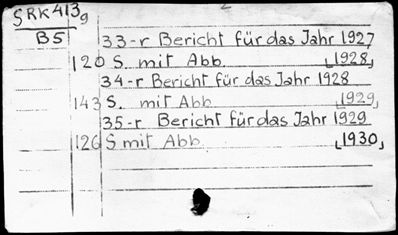 SRK413g
B5
33-r Bericht für das Jahr 1927
120 S. mit Abb. [1928]
34-r Bericht für das Jahr 1928
143 S. mit Abb. [1929]
35-r Bericht für das Jahr 1929
126 S mit Abb. [1930]